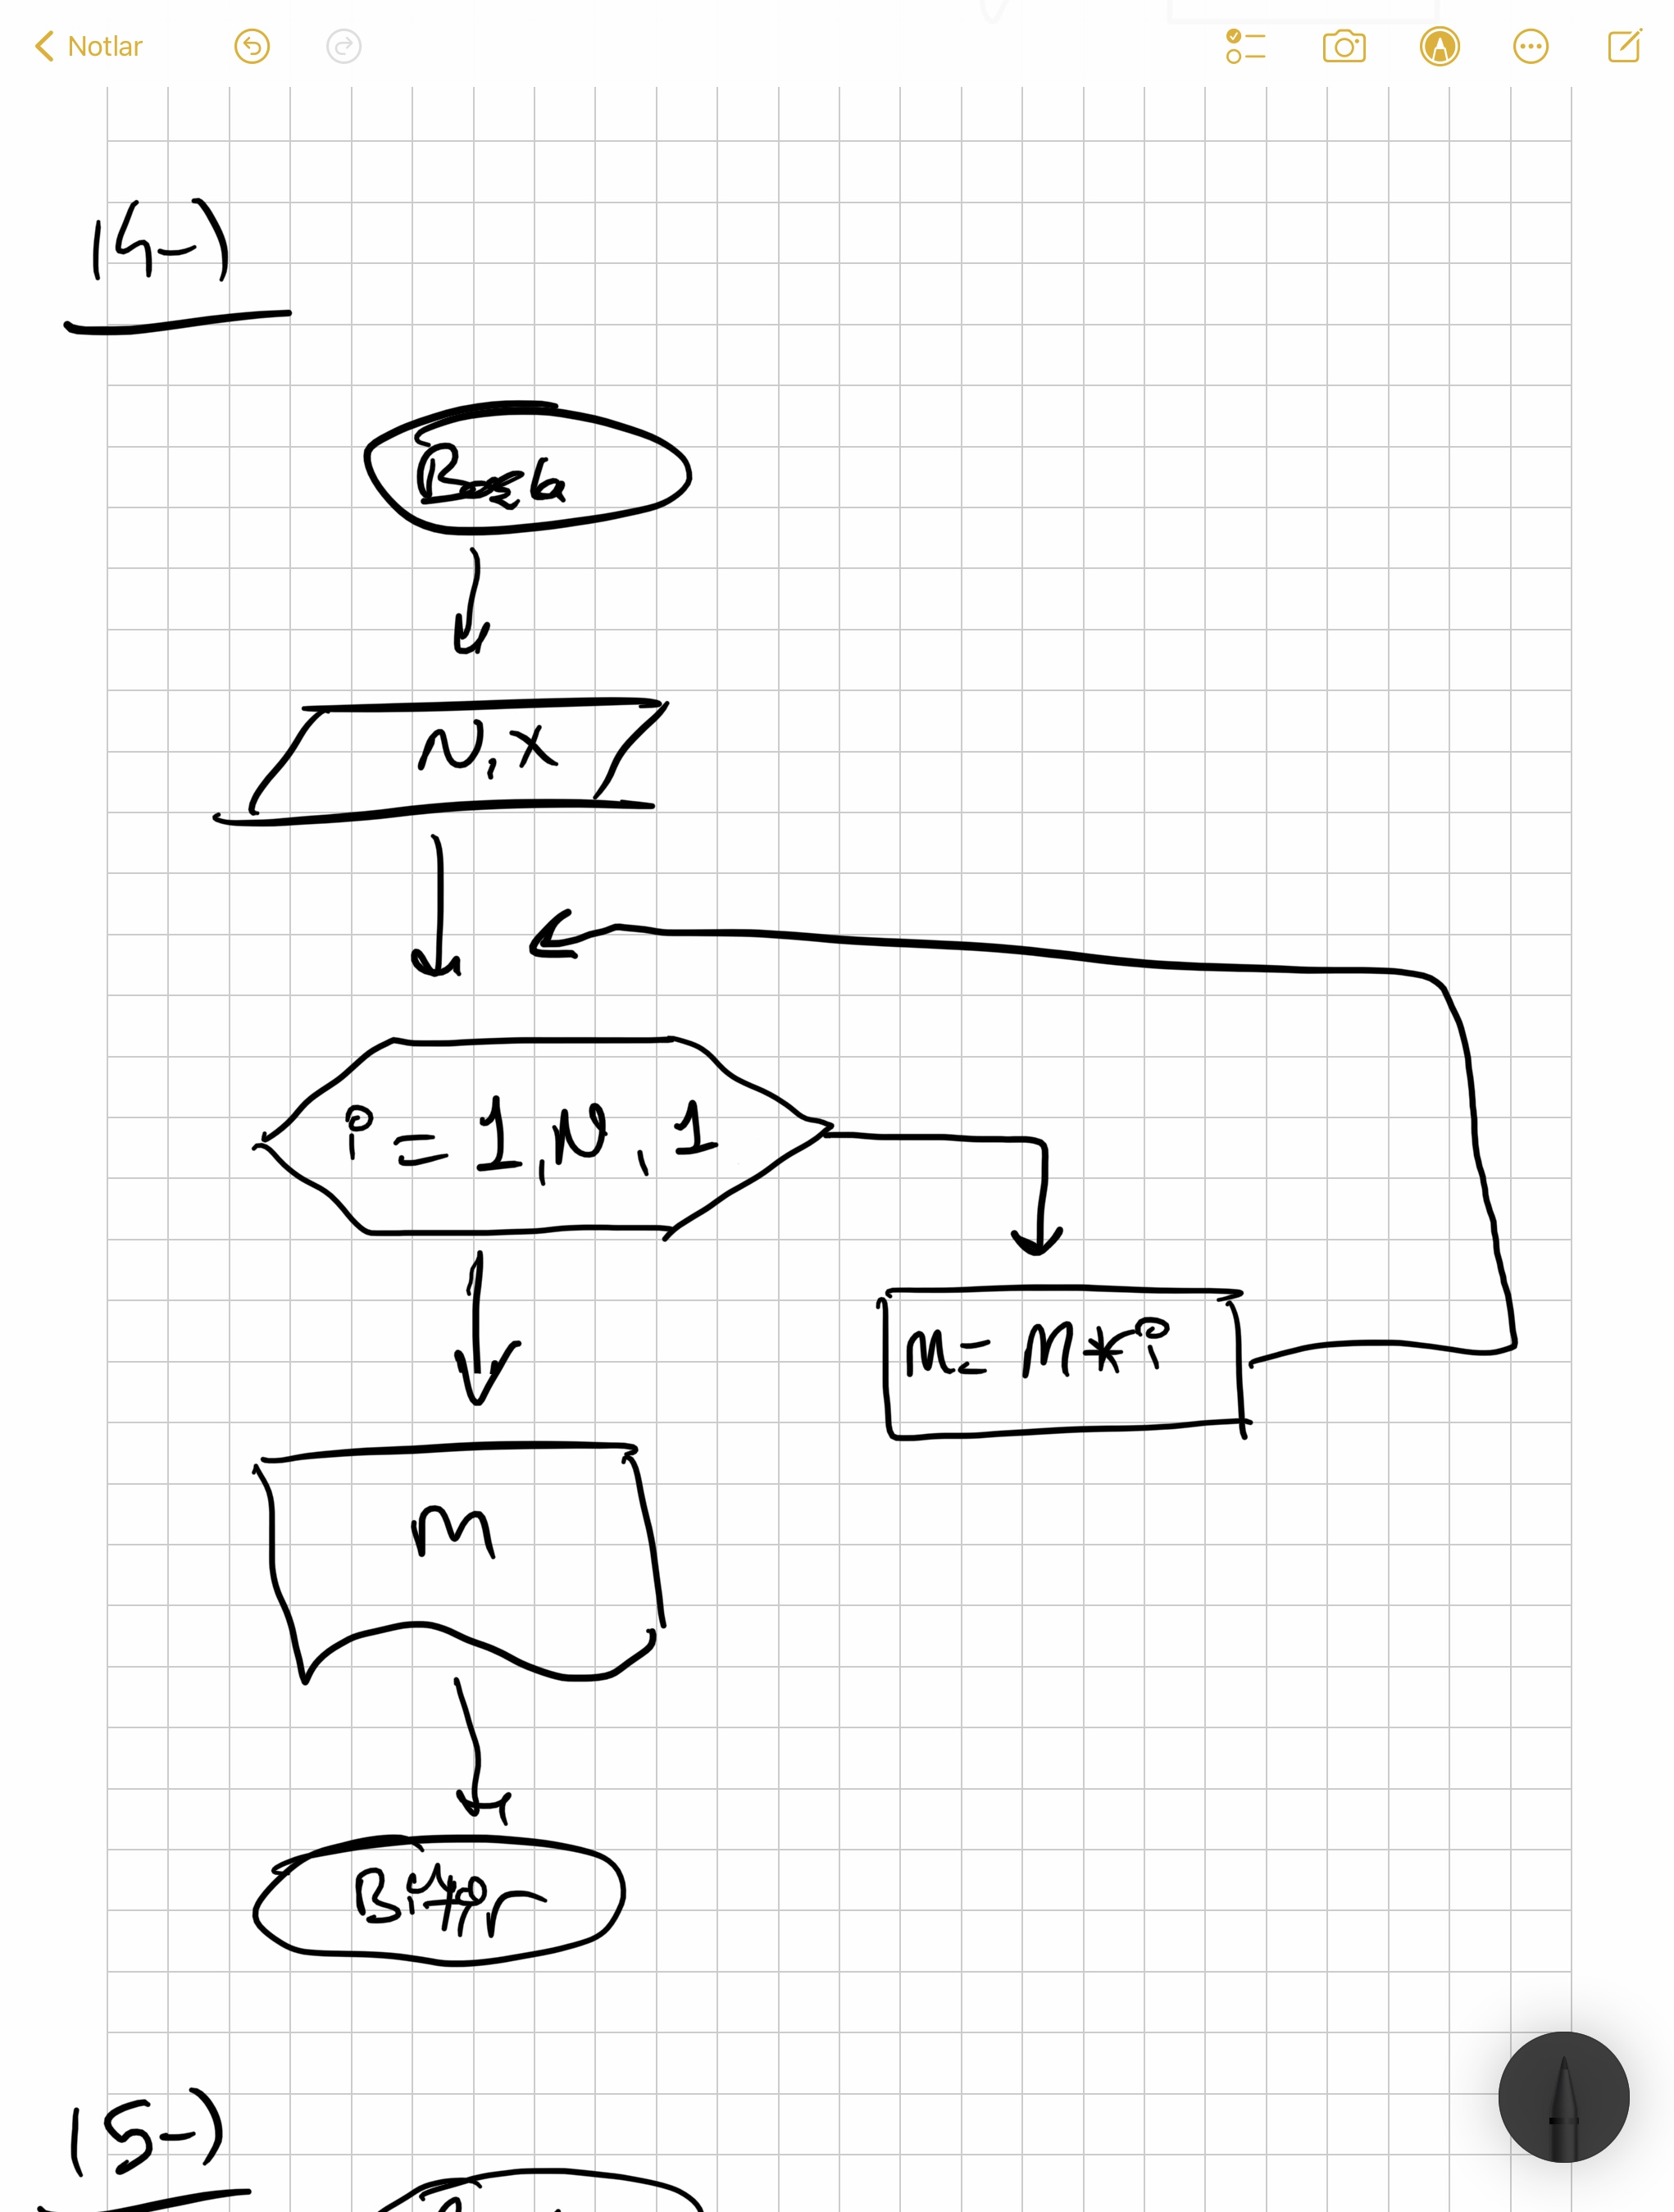 Notlar
14-)
Başla
N, X
i = 1, N, 1
M = M * i
M
Bitir
15-)